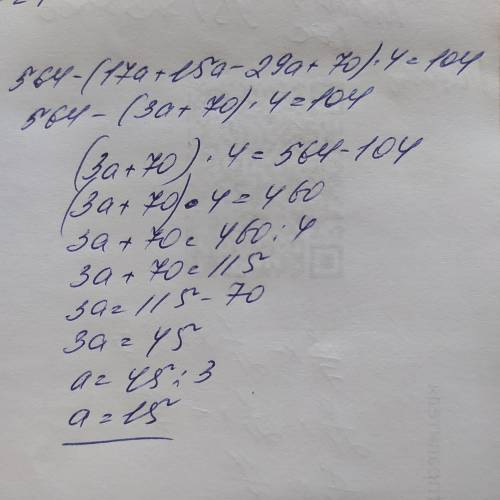 564-(17a+15a-29a+70)·4=104
564-(3a+70)·4=104
(3a+70)·4=564-104
(3a+70)·4=460
3a+70=460:4
3a+70=115
3a=115-70
3a=45
a=45:3
a=15